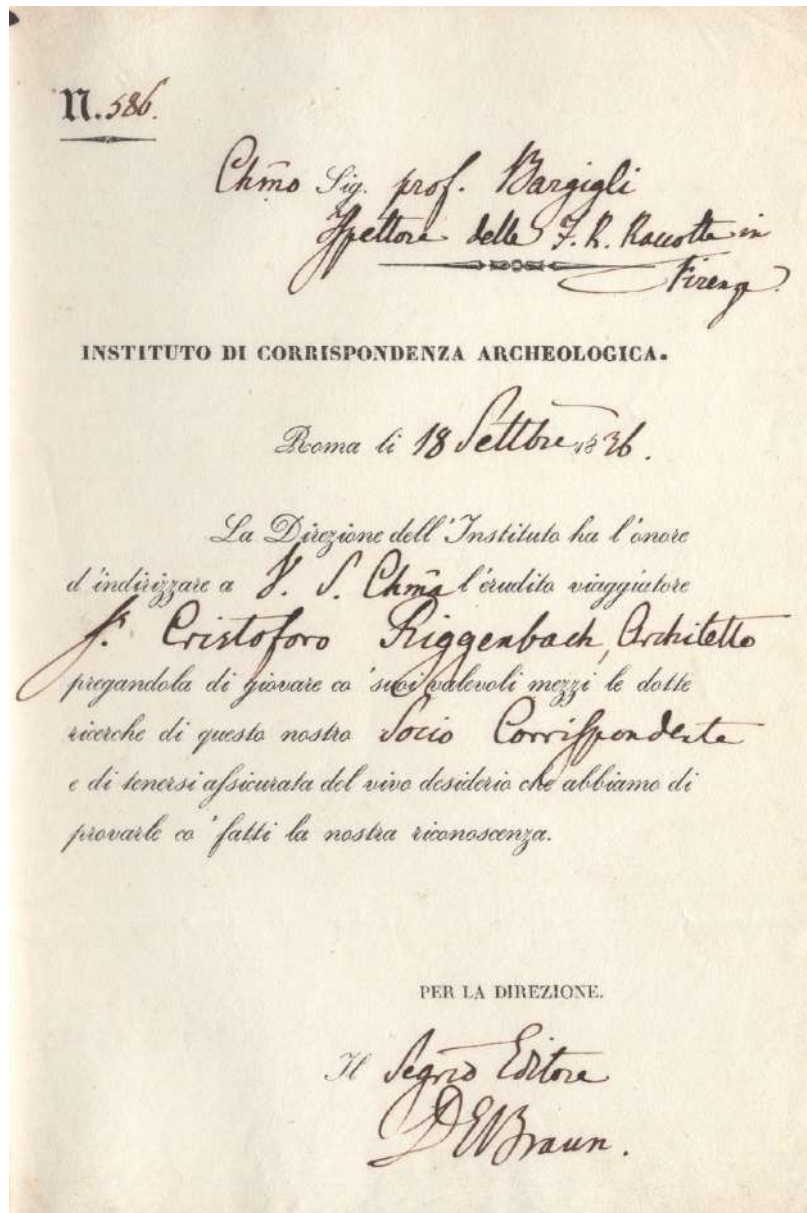 N. 586.
Chm̃o Sig. prof. Bargigli
Ispettore delle I. R. Raccolte in
Firenze
INSTITUTO DI CORRISPONDENZA ARCHEOLOGICA.
Roma li 18 Settbre 1836.
La Direzione dell'Instituto ha l'onore
d'indirizzare a V. S. Chm̃a l'erudito viaggiatore
Sr. Cristoforo Riggenbach, Architetto
pregandola di giovare co' suoi valevoli mezzi le dotte
ricerche di questo nostro Socio Corrispondente
e di tenersi assicurata del vivo desiderio che abbiamo di
provarle co' fatti la nostra riconoscenza.
PER LA DIREZIONE.
Il Segrio Editore
D E Braun.